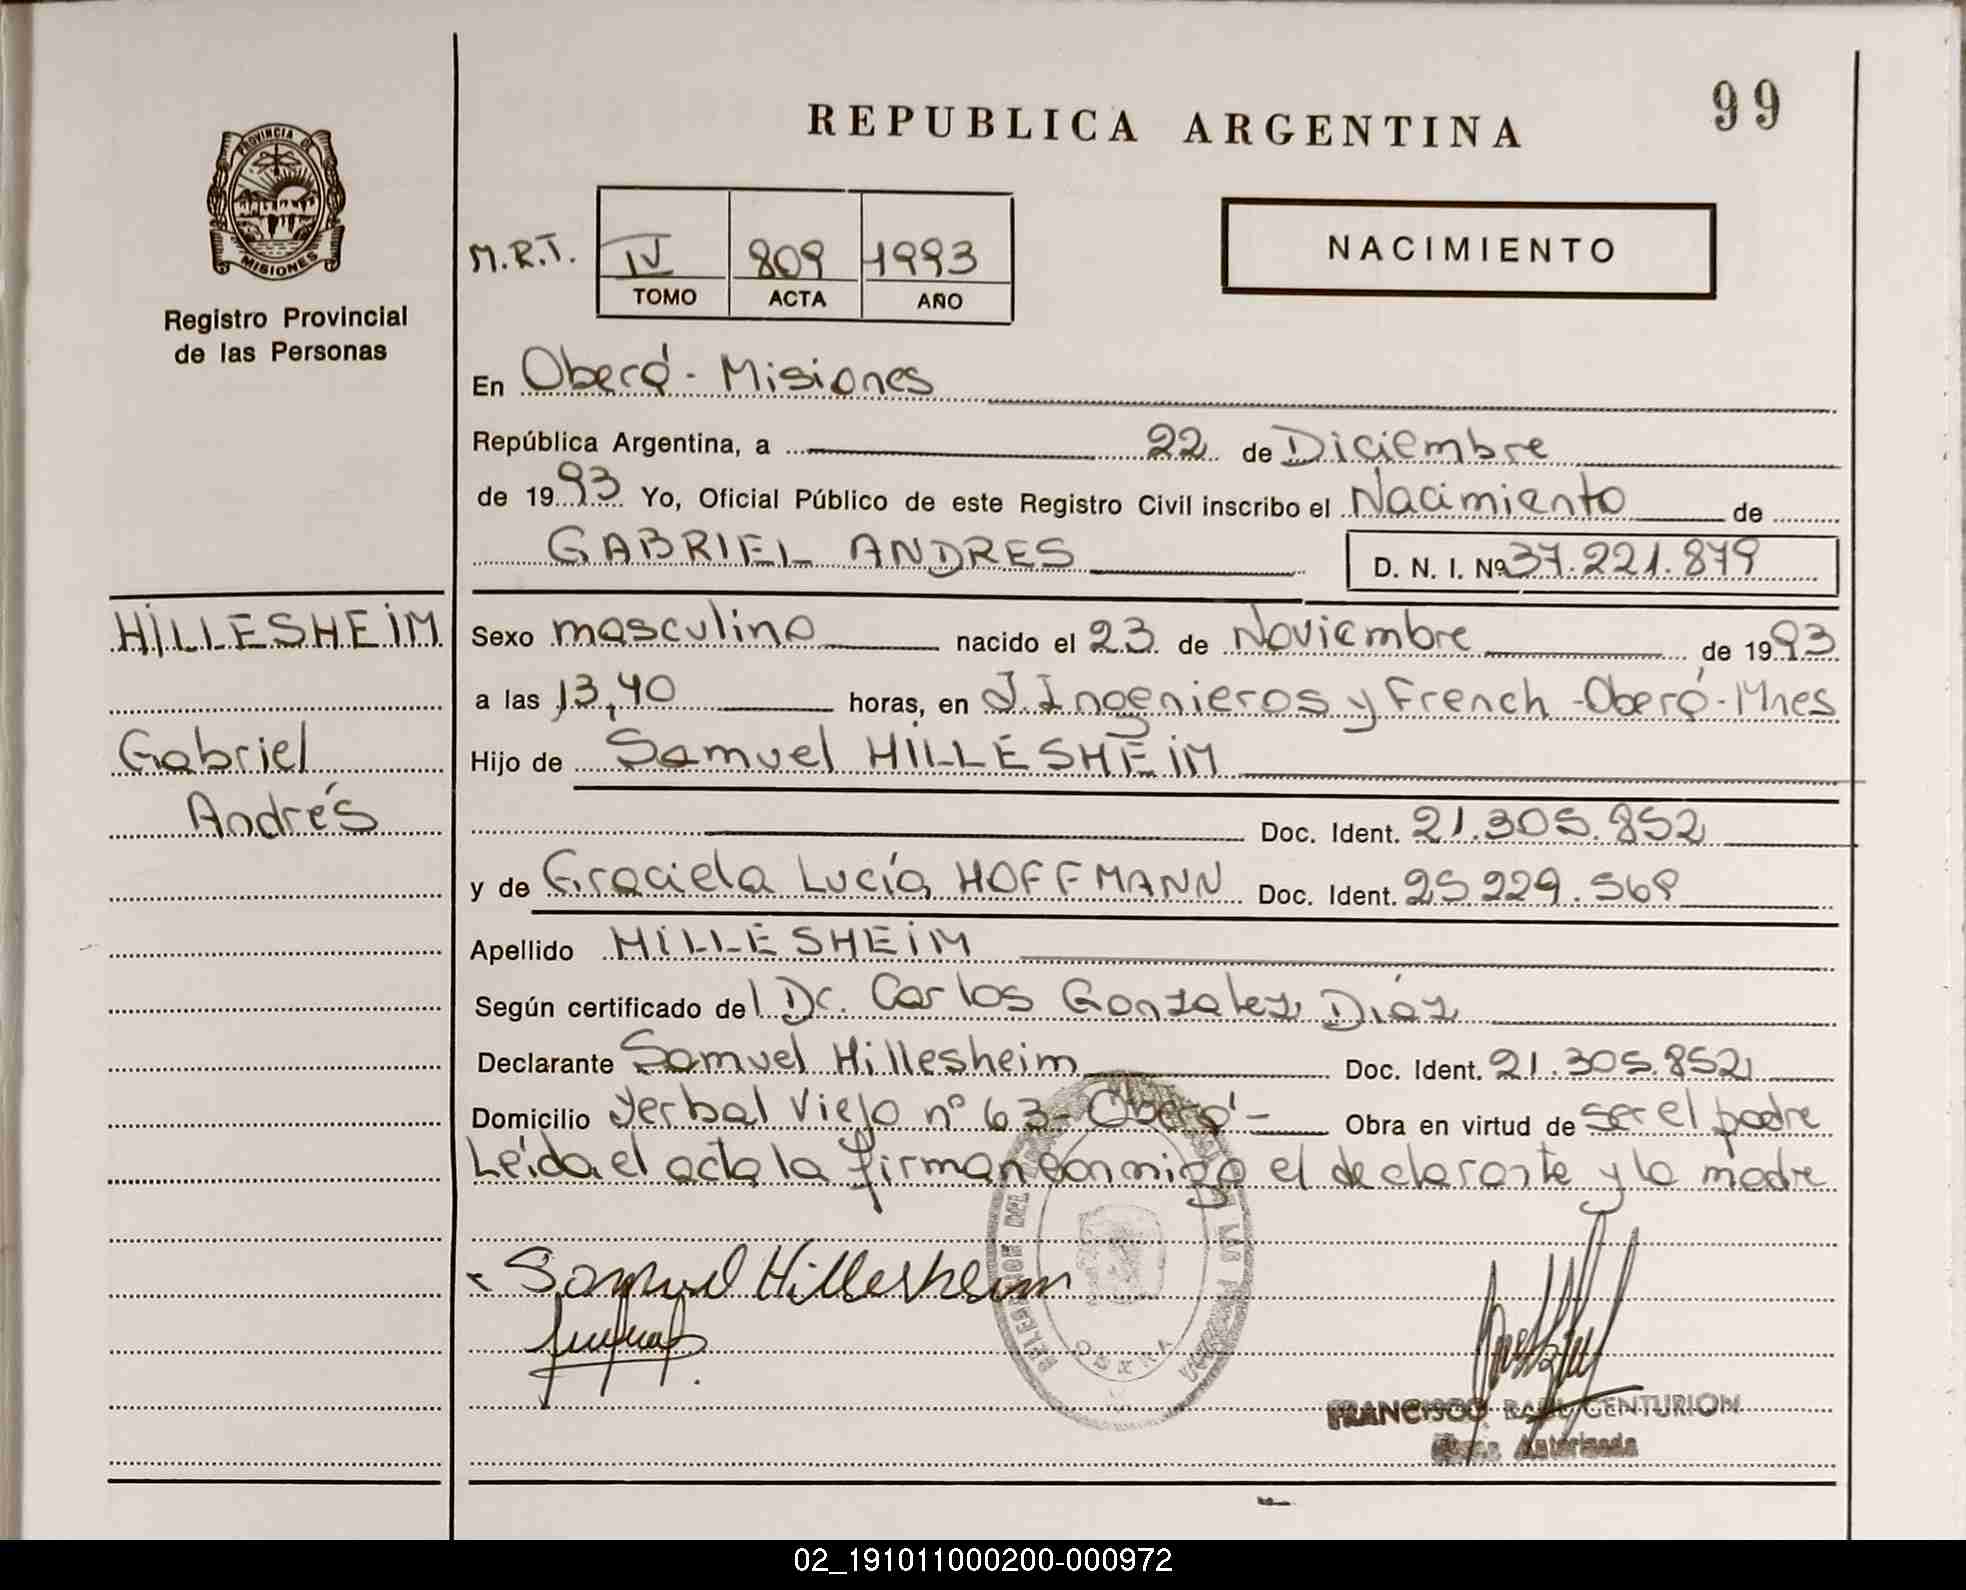 REPUBLICA ARGENTINA
99
PROVINCIA DE
MISIONES
Registro Provincial
de las Personas
M.R.T.
IV 809 1993
TOMO ACTA AÑO
NACIMIENTO
En Oberá - Misiones
República Argentina, a 22 de Diciembre
de 1993 Yo, Oficial Público de este Registro Civil inscribo el Nacimiento de
GABRIEL ANDRES D. N. I. Nº 37.221.879
HILLESHEIM
Gabriel
Andrés
Sexo masculino nacido el 23 de Noviembre de 1993
a las 13,40 horas, en J. Ingenieros y French - Oberá - Mnes
Hijo de Samuel HILLESHEIM
Doc. Ident. 21.305.852
y de Graciela Lucía HOFFMANN Doc. Ident. 25.229.568
Apellido HILLESHEIM
Según certificado del Dr. Carlos Gonzalez Díaz
Declarante Samuel Hillesheim Doc. Ident. 21.305.852
Domicilio Yerbal Viejo nº 63 - Oberá - Obra en virtud de ser el padre
Leída el acta la firman conmigo el declarante y la madre
Samuel Hillesheim
DELEGACION DEL
OBERA
FRANCISCO RAUL CENTURION
Firma Autorizada
02_191011000200-000972